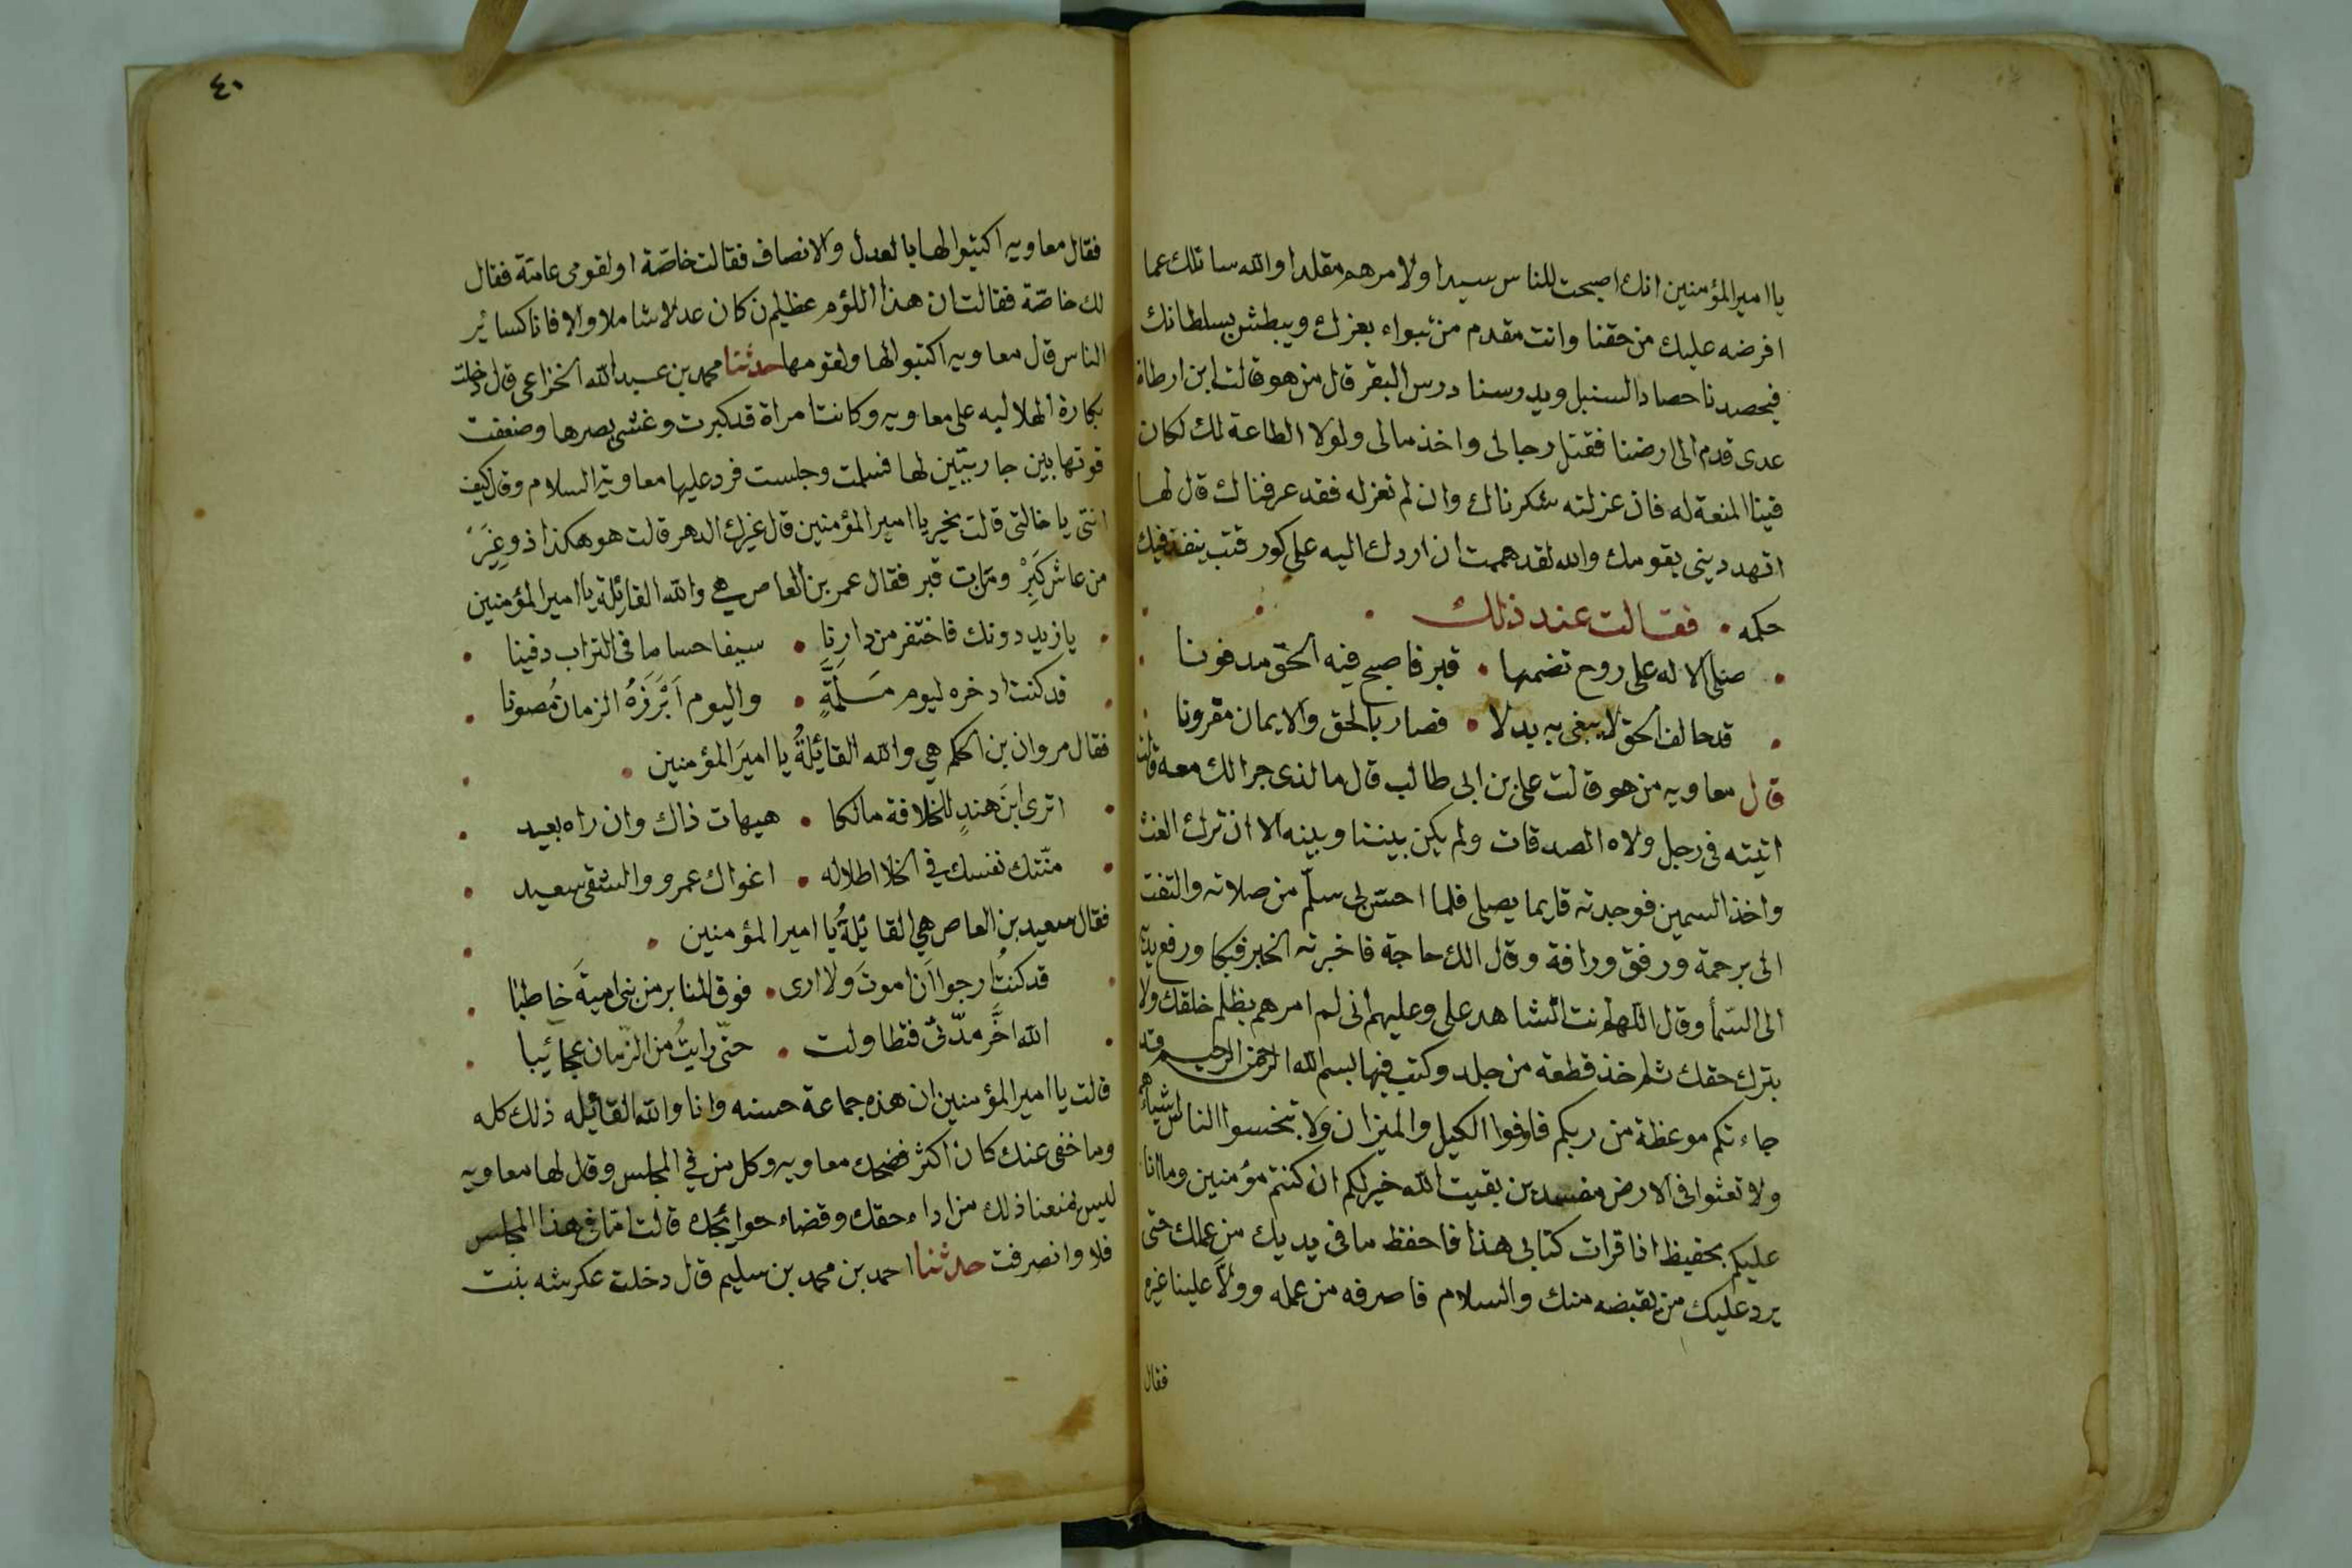 يا امير المؤمنين انك اصبحت للناس سيدا ولامرهم مقلدا والله سائلك عما
افرضه عليك من حقنا وانت مقدم من ينبواء بعزك ويبطش بسلطانك
فيحصدنا حصاد السنبل ويدوسنا درس البقر قال من هو قالت ابن ارطاة
عدى قدم الى ارضنا فقتل رجالى واخذ مالى ولولا الطاعة لك لكان
فينا المنعة له فان عزلته شكرناك وان لم تعزله فقد عرفناك قال لها
اتهدديني بقومك والله لقد هممت ان اردك اليه على كور قتب ينفذ فيك
حكمه • فقالت عند ذلك
صلى الاله على روح تضمنها • قبر فاصبح فيه الحق مدفونا
قد حالف الحق لا يبغى به بدلا • فصار بالحق والايمان مقرونا
قال معاويه من هو قالت على بن ابى طالب قال ما الذى جرالك معه قالت
اتيته فى رجل ولاه الصدقات ولم يكن بيننا وبينه الا ان ترك الغث
واخذ السمين فوجدته قايما يصلى فلما احسّ بى سلّم من صلاته والتفت
الى برحمة ورفق ورافة وقال الك حاجة فاخبرته الخبر فبكا ورفع يديه
الى السمأ وقال اللهم انت الشاهد على وعليهم انى لم امرهم بظلم خلقك ولا
بترك حقك ثم اخذ قطعة من جلد وكتب فيها بسم الله الرحمن الرحيم قد
جاءتكم موعظة من ربكم فاوفوا الكيل والميزان ولا تبخسوا الناس اشياءهم
ولا تعثوا فى الارض مفسدين بقيت الله خير لكم ان كنتم مؤمنين وما انا
عليكم بحفيظ اذا قرات كتابى هذا فاحفظ ما فى يديك من عملك حتى
يرد عليك من يقبضه منك والسلام فاصرفه من عمله وولّا علينا غيره
فقال
٤٠
فقال معاويه اكتبوا لها بالعدل والانصاف فقالت خاصّة او لقومى عامّة فقال
لك خاصّة فقالت ان هذا اللؤم عظيم ن كان عدلا شاملا والا فانا كسائر
الناس قال معاويه اكتبوا لها ولقومها حدثنا محمد بن عبد الله الخزاعى قال دخلت
بكارة الهلاليه على معاويه وكانت امراة قد كبرت وغشى بصرها وضعفت
قوتها بين جاريتين لها فسلمت وجلست فرد عليها معاوية السلام وقال كيف
انتى يا خالتى قالت بخير يا امير المؤمنين قال غيرك الدهر قالت هو هكذا ذو غِيَرٍ
من عاش كَبِرْ ومن مات قبر فقال عمر بن العاص هي والله القائلة يا امير المؤمنين
يا زيد دونك فاحتفر من دارنا • سيفا حساما فى التراب دفينا
قد كنت ادخره ليوم مَسَلَمَّةٍ • واليوم اَبْرَزَهُ الزمان مُصونا
فقال مروان بن الحكم هي والله القائلةُ يا اميرَ المؤمنين
اترى ابنَ هندٍ للخلافة مالكا • هيهات ذاك وان راه بعيد
منّتك نفسك في الخلا اطلاله • اغواك عمرو والشقى سعيد
فقال سعيد بن العاص هي القائلةُ يا امير المؤمنين
قد كنتُ ارجوا اَن اموتَ ولا ارى • فوق المنابر من بنى اميةَ خاطبًا
الله اخّرَ مدّتى فتطاولت • حتّى رايتُ من الزّمان عجائبا
قالت يا امير المؤمنين ان هذه جماعة حسنه وانا والله القائله ذلك كله
وما خفى عنك كان اكثر فضحك معاويه وكل من في المجلس وقال لها معاويه
ليس يمنعنا ذلك من اداء حقك وقضاء حوايجك قالت امّا فى هذا المجلس
فلا وانصرفت حدثنا احمد بن محمد بن سليم قال دخلت عكرشه بنت